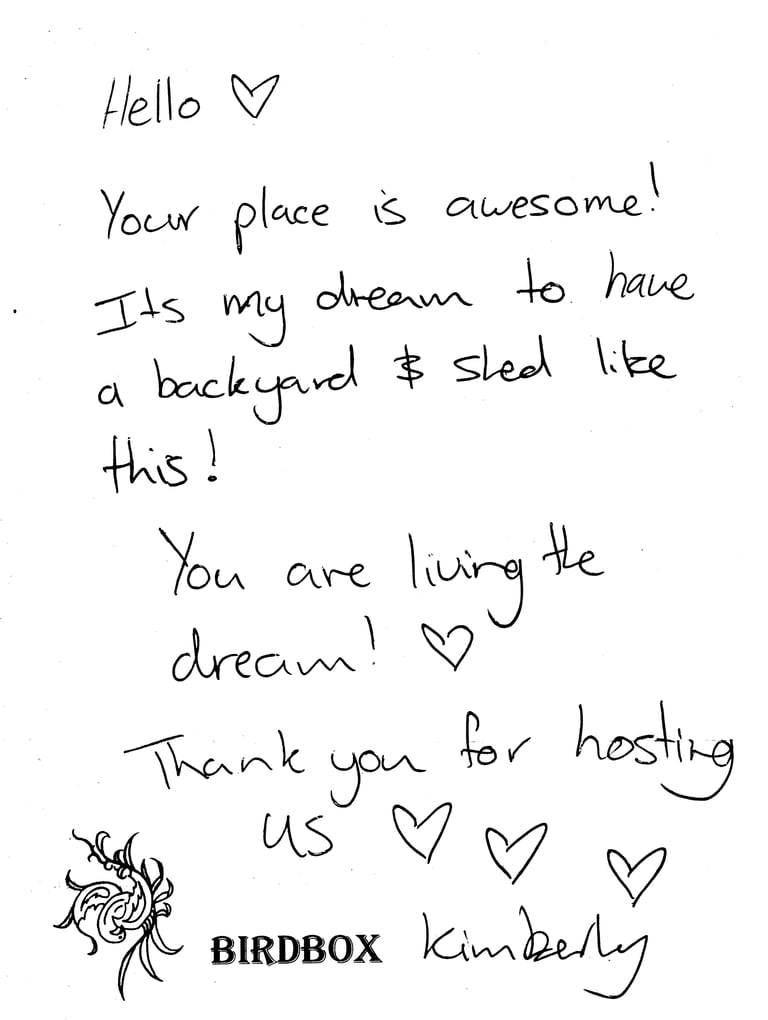 Hello ♡
Your place is awesome!
Its my dream to have
a backyard & shed like
this!
You are living the
dream! ♡
Thank you for hosting
us ♡ ♡ ♡
BIRDBOX Kimberly